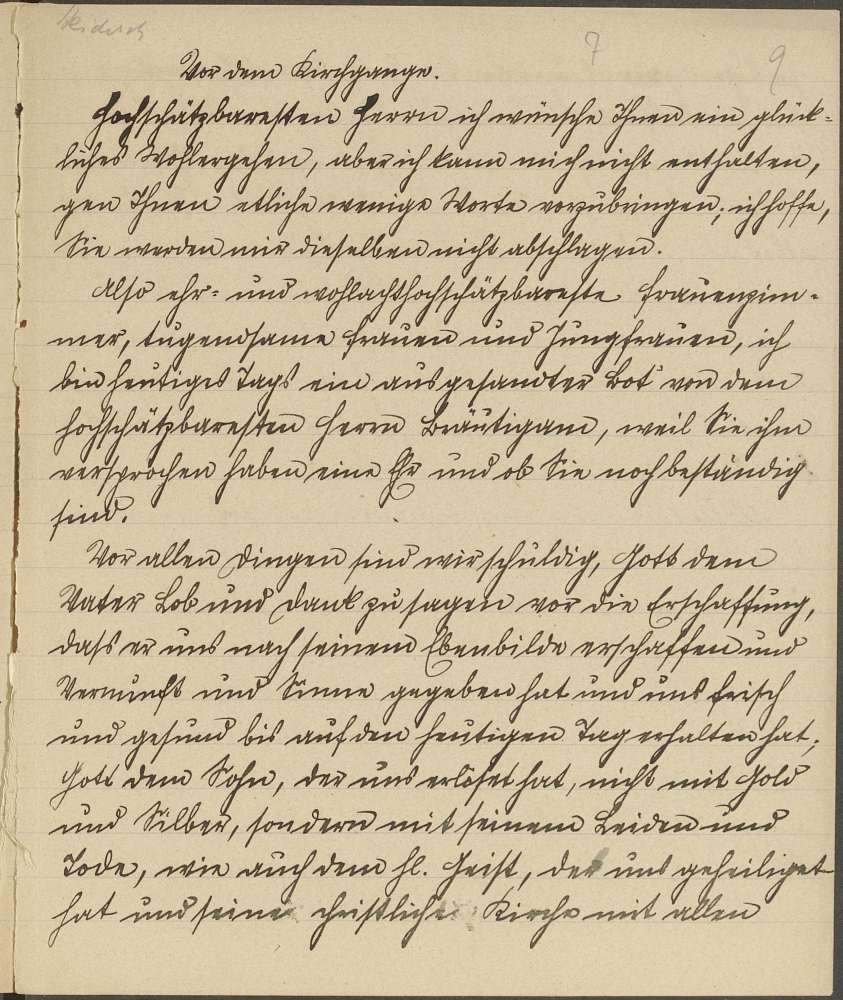 7 9
Vor dem Kirchgange.
Hochschätzbaresten Herrn ich wünsche Ihnen ein glück-
liches Wohlergehen, aber ich kann mich nicht enthalten,
gen Ihnen etliche wenige Worte vorzubringen; ich hoffe,
Sie werden mir dieselben nicht abschlagen.
Also ehr- und wohlachthochschätzbareste Frauenzim-
mer, tugendsame Frauen und Jungfrauen, ich
bin heutiges Tags ein ausgesandter Bot' von dem
hochschätzbaresten Herrn Bräutigam, weil Sie ihm
versprochen haben eine Ehe und ob Sie noch beständig
sind.
Vor allen Dingen sind wir schuldig, Gott dem
Vater Lob und Dank zu sagen vor die Erschaffung,
dass er uns nach seinem Ebenbilde erschaffen und
Vernunft und Sinne gegeben hat und uns frisch
und gesund bis auf den heutigen Tag erhalten hat;
Gott dem Sohn, der uns erlöset hat, nicht mit Gold
und Silber, sondern mit seinem Leiden und
Tode, wie auch dem hl. Geist, der uns geheiliget
hat und seine christliche Kirche mit allen